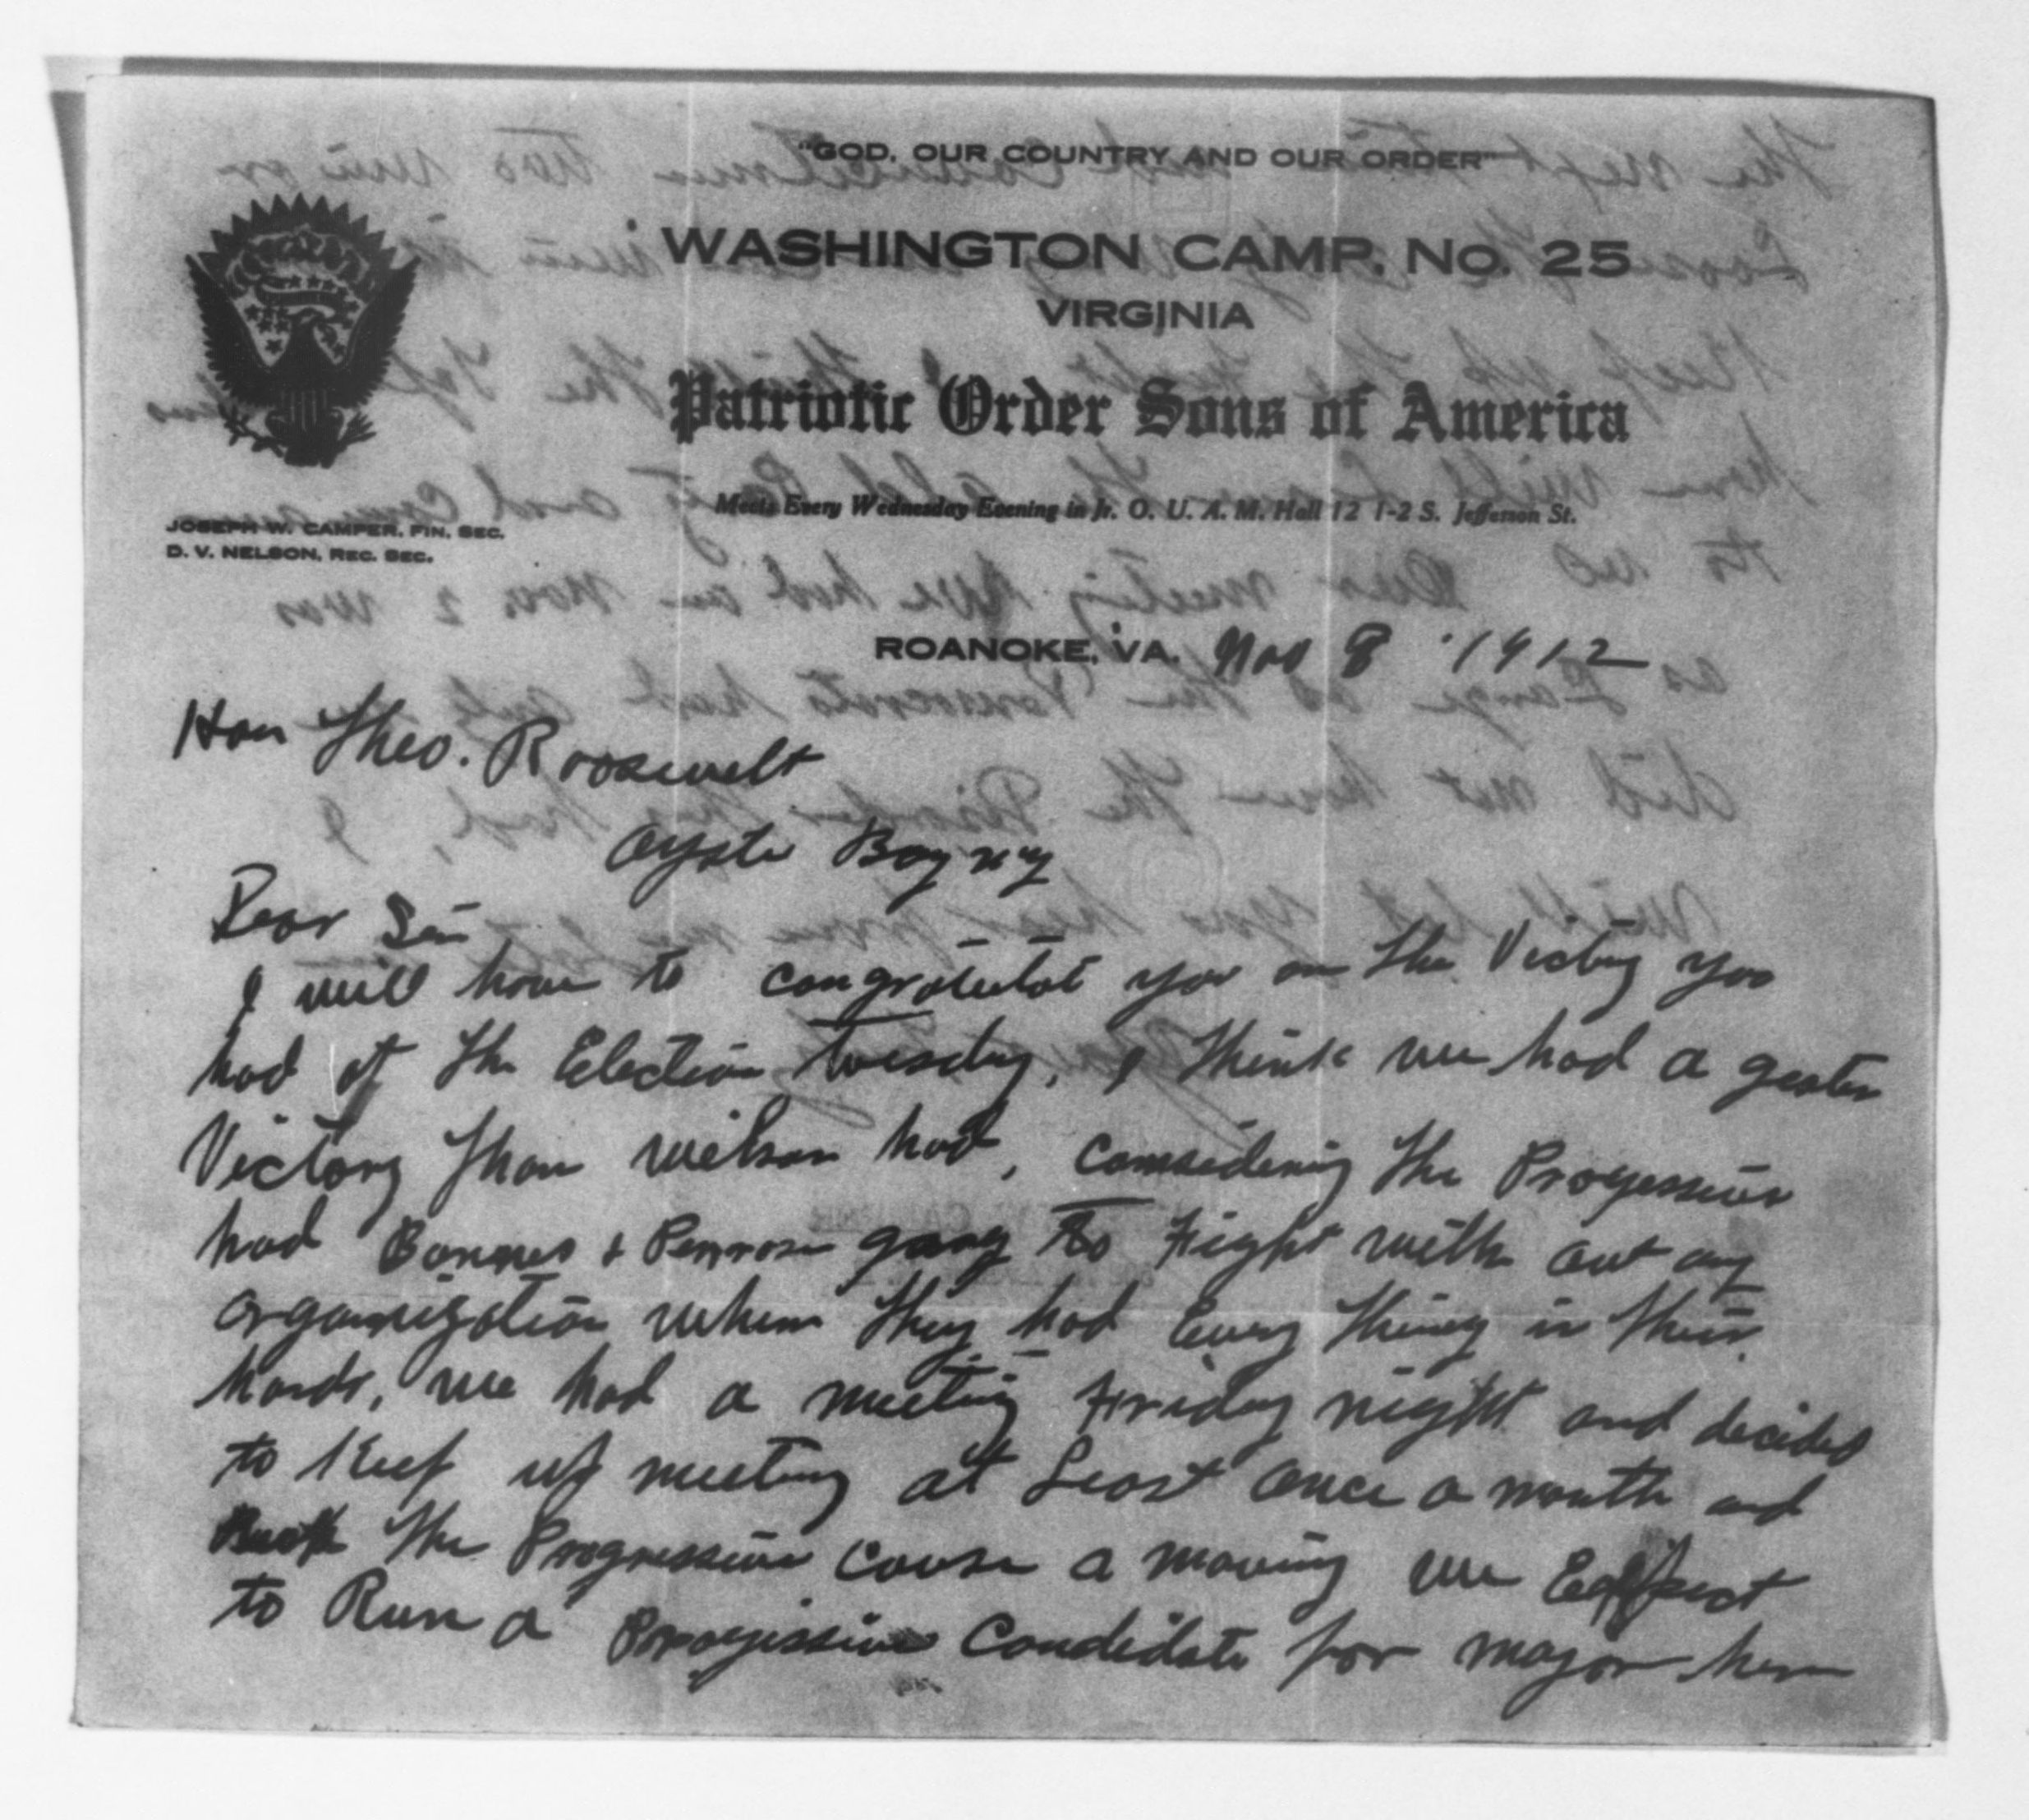 "GOD, OUR COUNTRY AND OUR ORDER"
WASHINGTON CAMP, No. 25
VIRGINIA
Patriotic Order Sons of America
Meets Every Wednesday Evening in Jr. O. U. A. M. Hall 12 1-2 S. Jefferson St.
JOSEPH W. CAMPER, FIN. SEC.
D. V. NELSON, REC. SEC.
ROANOKE, VA. Nov 8 1912
Hon Theo. Roosevelt
Oyster Bay NY
Dear Sir
I will have to congratulat you on the Victory you
had at the Election tuesday, I think we had a greater
Victory than Wilson had, considering the Progessive
had Barnes & Penrose gang to fight with out any
organization when they had Every thing in their
hands, we had a meeting Friday night and decided
to Keep up meeting at Least once a month and
the Progressive cause a moving we Expect
to Run a Progissive Candidate for mayor here